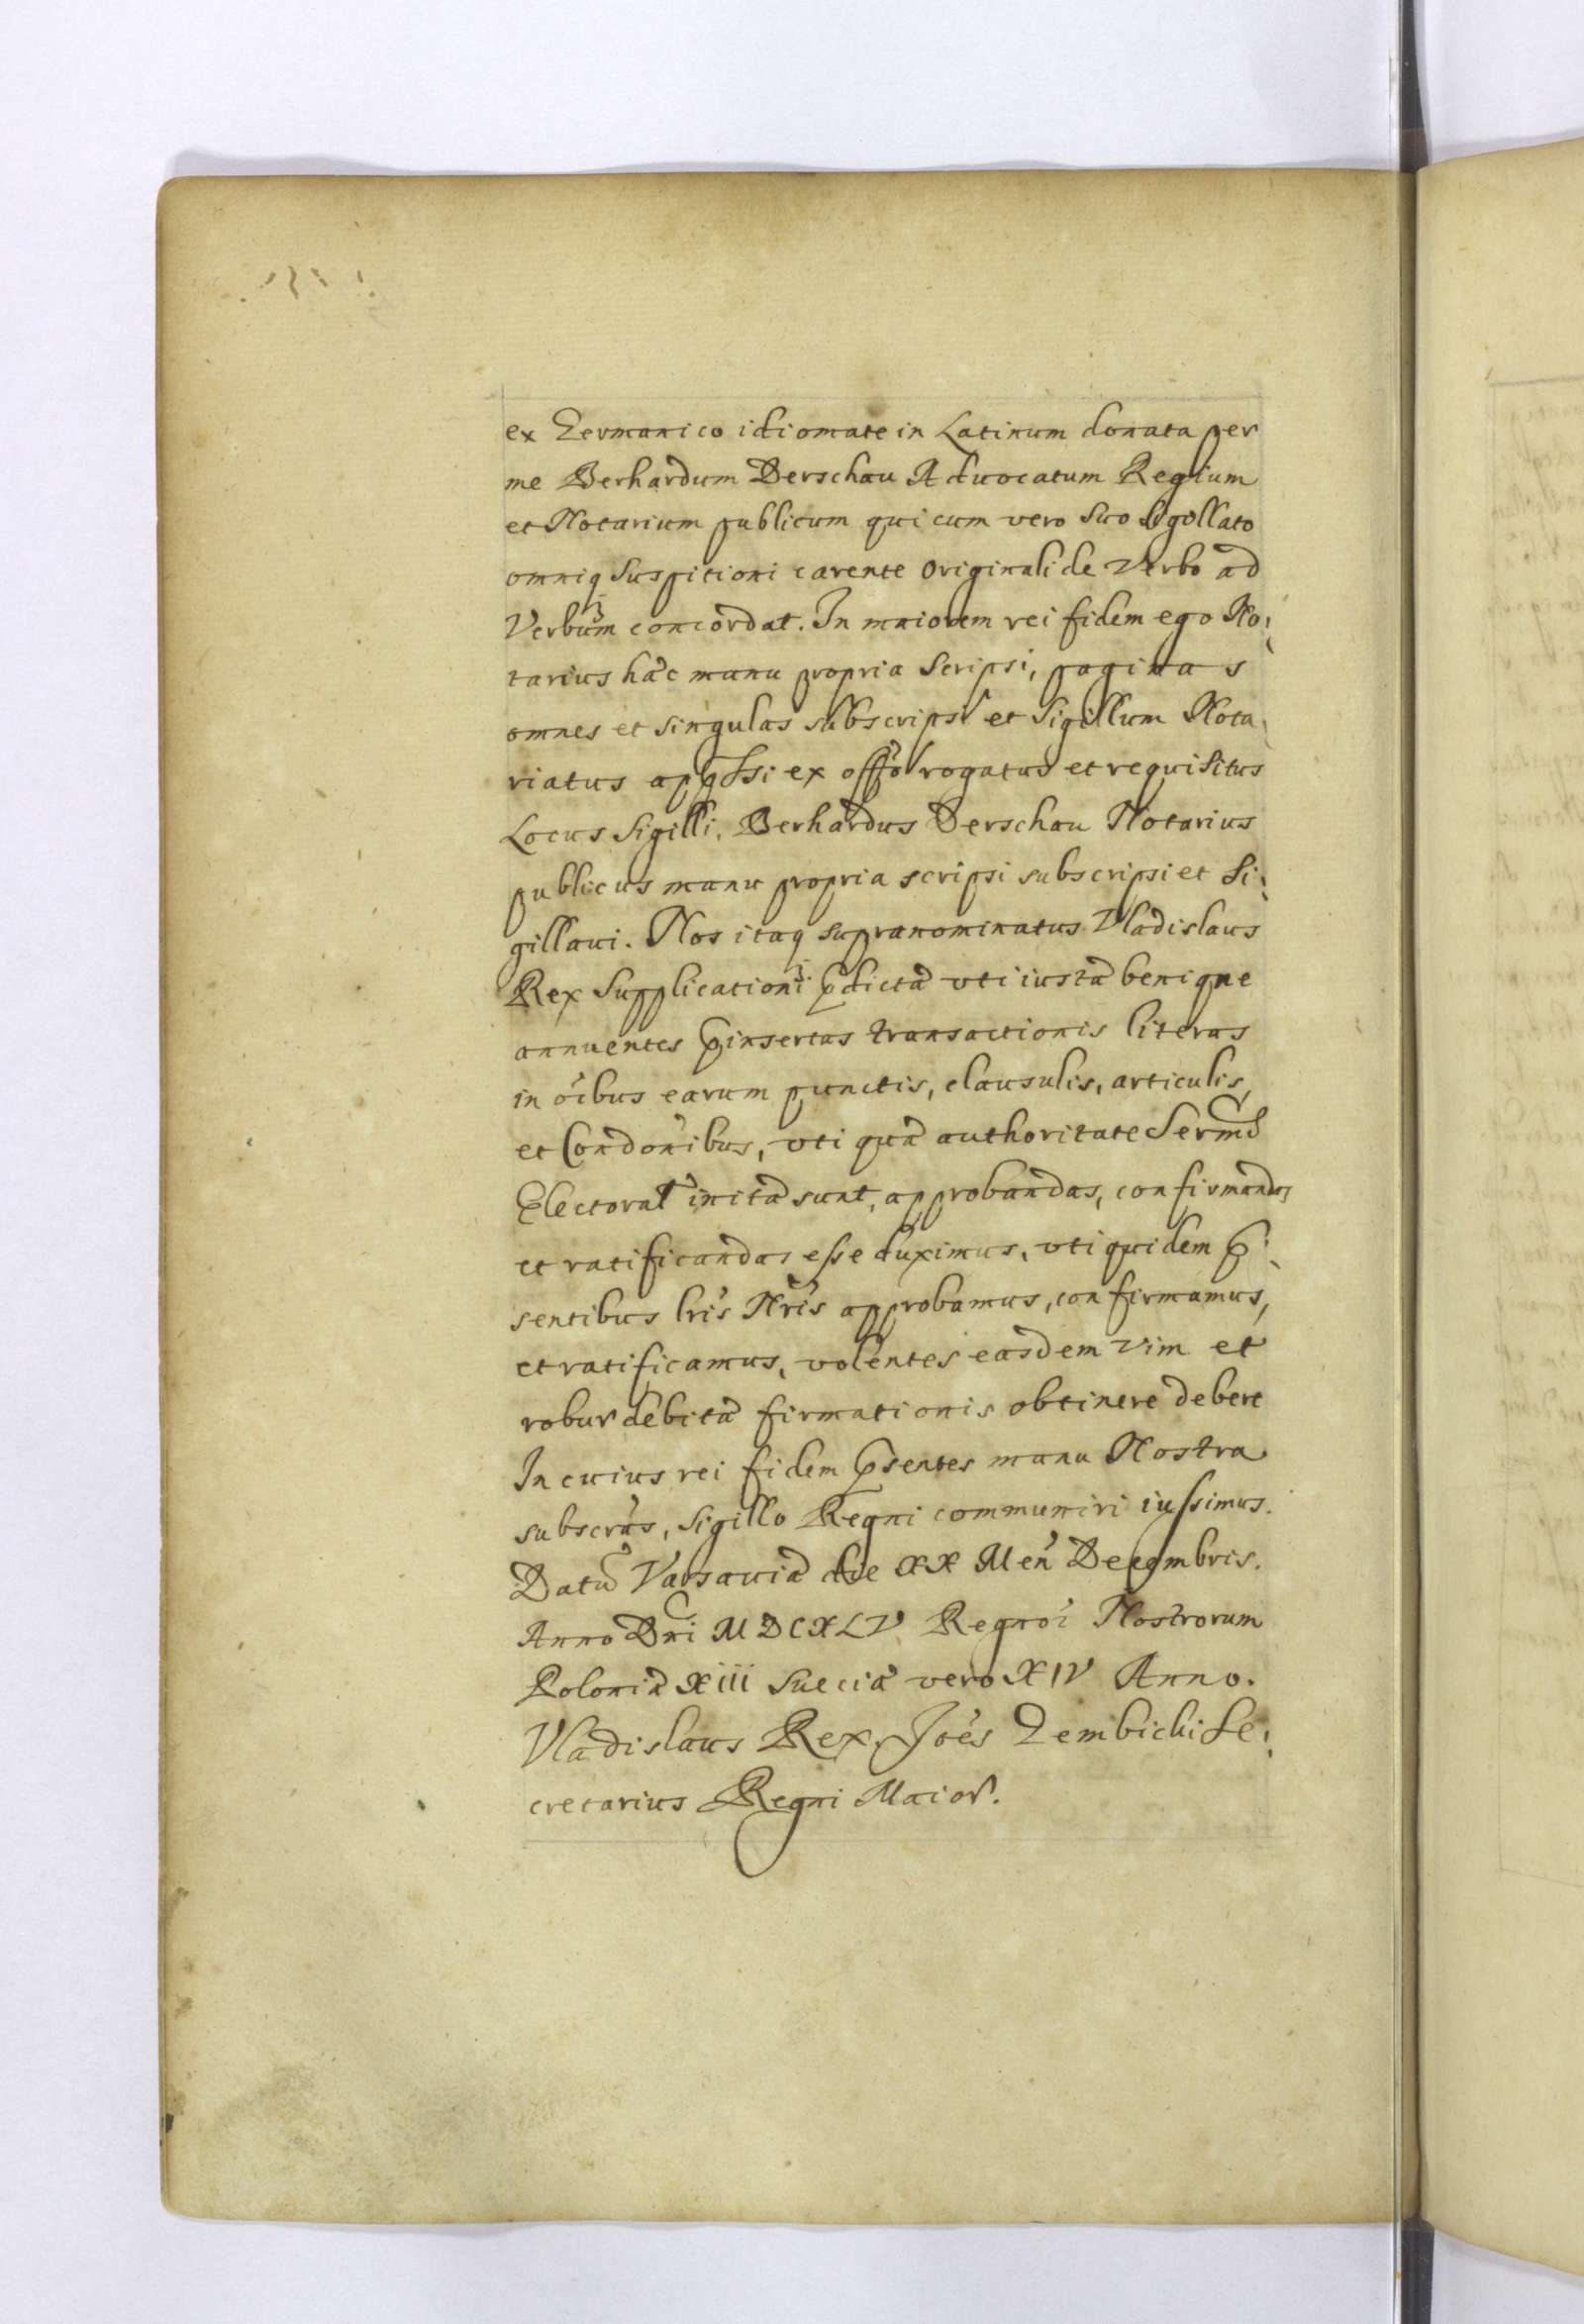 ex Germanico idiomate in Latinum donata per
me Berhardum Derschau Advocatum Regium
et Notarium publicum qui cum vero suo sigillato
omniq suspitioni carente originali de Verbo ad
Verbum concordat. In maiorem rei fidem ego No:
tarius hæc manu propria scripsi, paginas
omnes et singulas subscripsi et sigillum Nota:
riatus appssi ex offo rogatus et requisitus
Locus sigilli, Berhardus Derschau Notarius
publicus manu propria scripsi subscripsi et si:
gillavi. Nos itaq supranominatus Vladislaus
Rex supplicationi pdictæ uti iustæ benigne
annuentes pinsertas transactionis literas
in oibus earum punctis, clausulis, articulis,
et Condonibus, uti quæ authoritate Sermi
Electoral initæ sunt, approbandas, confirmandas
et ratificandas esse duximus, uti quidem p:
sentibus lris Nris approbamus, confirmamus,
et ratificamus, volentes easdem vim et
robur debitæ firmationis obtinere debere
In cuius rei fidem psentes manu Nostra
subscras, sigillo Regni communiri iussimus.
Datu Varsaviæ die XX Men Decembris.
Anno Dni MDCXLV Regnoi Nostrorum
Poloniæ Xiii Sueciæ vero XIV Anno.
Vladislaus Rex, Joes Zembicki Se:
cretarius Regni Maior.